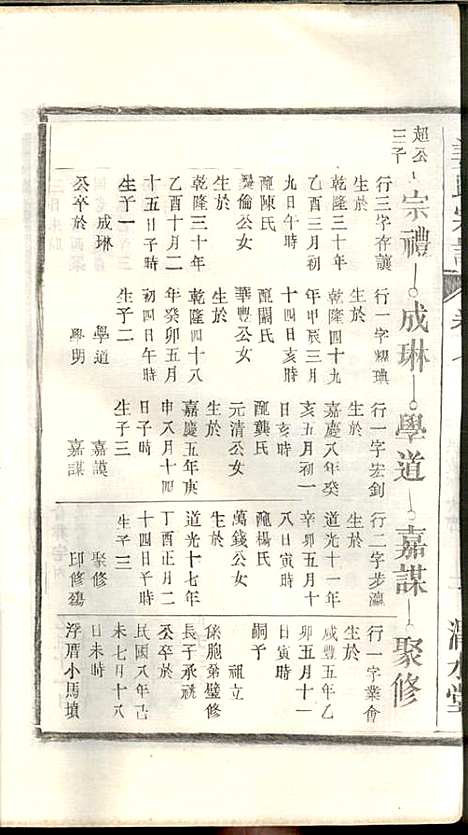 超公
三子
宗禮
成琳
學道
嘉謀
聚修
行三字存讓
生於
乾隆三十年
乙酉三月初
九日午時
配陳氏
倫公女
生於
乾隆三十年
乙酉十月二
十五日子時
生子一
成琳
公卒於
行一字耀璵
生於
乾隆四十九
年甲辰三月
十四日亥時
配關氏
華豐公女
生於
乾隆四十八
年癸卯五月
初四日午時
生子二
學道
學明
行一字宏釗
生於
嘉慶八年癸
亥五月初一
日亥時
配龔氏
元清公女
生於
嘉慶五年庚
申八月十四
日子時
生子三
嘉謨
嘉謀
行二字步瀛
生於
道光十一年
辛卯五月十
八日寅時
配楊氏
萬錢公女
生於
道光十七年
丁酉正月二
十四日午時
生子三
聚修
即修鷄
行一字業會
生於
咸豐五年乙
卯五月十一
日寅時
嗣子
祖立
係胞弟璧修
長子承祧
公卒於
民國八年己
未七月十八
日未時
浮厝小馬墳
清水堂